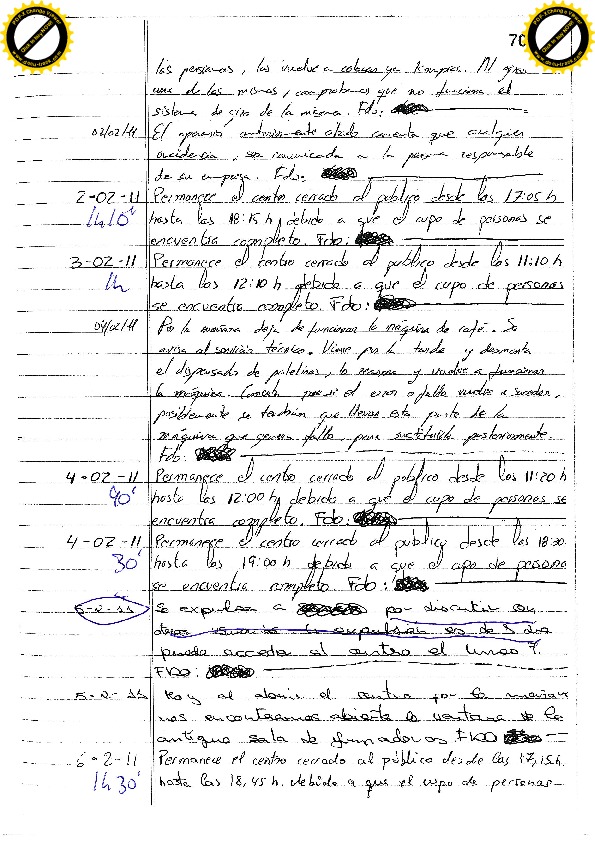 70
las personas, las vuelve a colocar ya limpias. Al girar
una de las mismas, comprobamos que no funciona el
sistema de giro de la misma. Fdo:
02/02/11 El operario anteriormente citado comenta que cualquier
incidencia, sea comunicada a la persona responsable
de su empresa. Fdo:
2-02-11 Permanece el centro cerrado al público desde las 17:05 h
1h 10' hasta las 18:15 h, debido a que el cupo de personas se
encuentra completo. Fdo:
3-02-11 Permanece el centro cerrado al público desde las 11:10 h
1h hasta las 12:10 h debido a que el cupo de personas
se encuentra completo. Fdo:
04/02/11 Por la mañana deja de funcionar la máquina de café. Se
avisa al servicio técnico. Viene por la tarde y desmonta
el dispensador de paletinas, lo y vuelve a funcionar
la máquina. Comenta que si el error o fallo vuelve a suceder,
posiblemente se tendrían que llevar esta parte de la
máquina que genera fallo, para sustituirla posteriormente.
Fdo.
4-02-11 Permanece el centro cerrado al público desde las 11:20 h
40' hasta las 12:00 h, debido a que el cupo de personas se
encuentra completo. Fdo:
4-02-11 Permanece el centro cerrado al público desde las 18:30
30' hasta las 19:00 h debido a que el cupo de personas
se encuentra completo Fdo:
5-2-11 Se expulsa a por discutir con
otros usuarios la expulsion es de
puede acceder al centro el lunes 7.
FDO:
5-2-11 Hoy al abrir el centro por la mañana
nos encontramos abierta la ventana de la
antigua sala de fumadores FDO
6-2-11 Permanece el centro cerrado al público desde las 17,15h.
1h 30' hasta las 18,45 h. debido a que el cupo de personas-